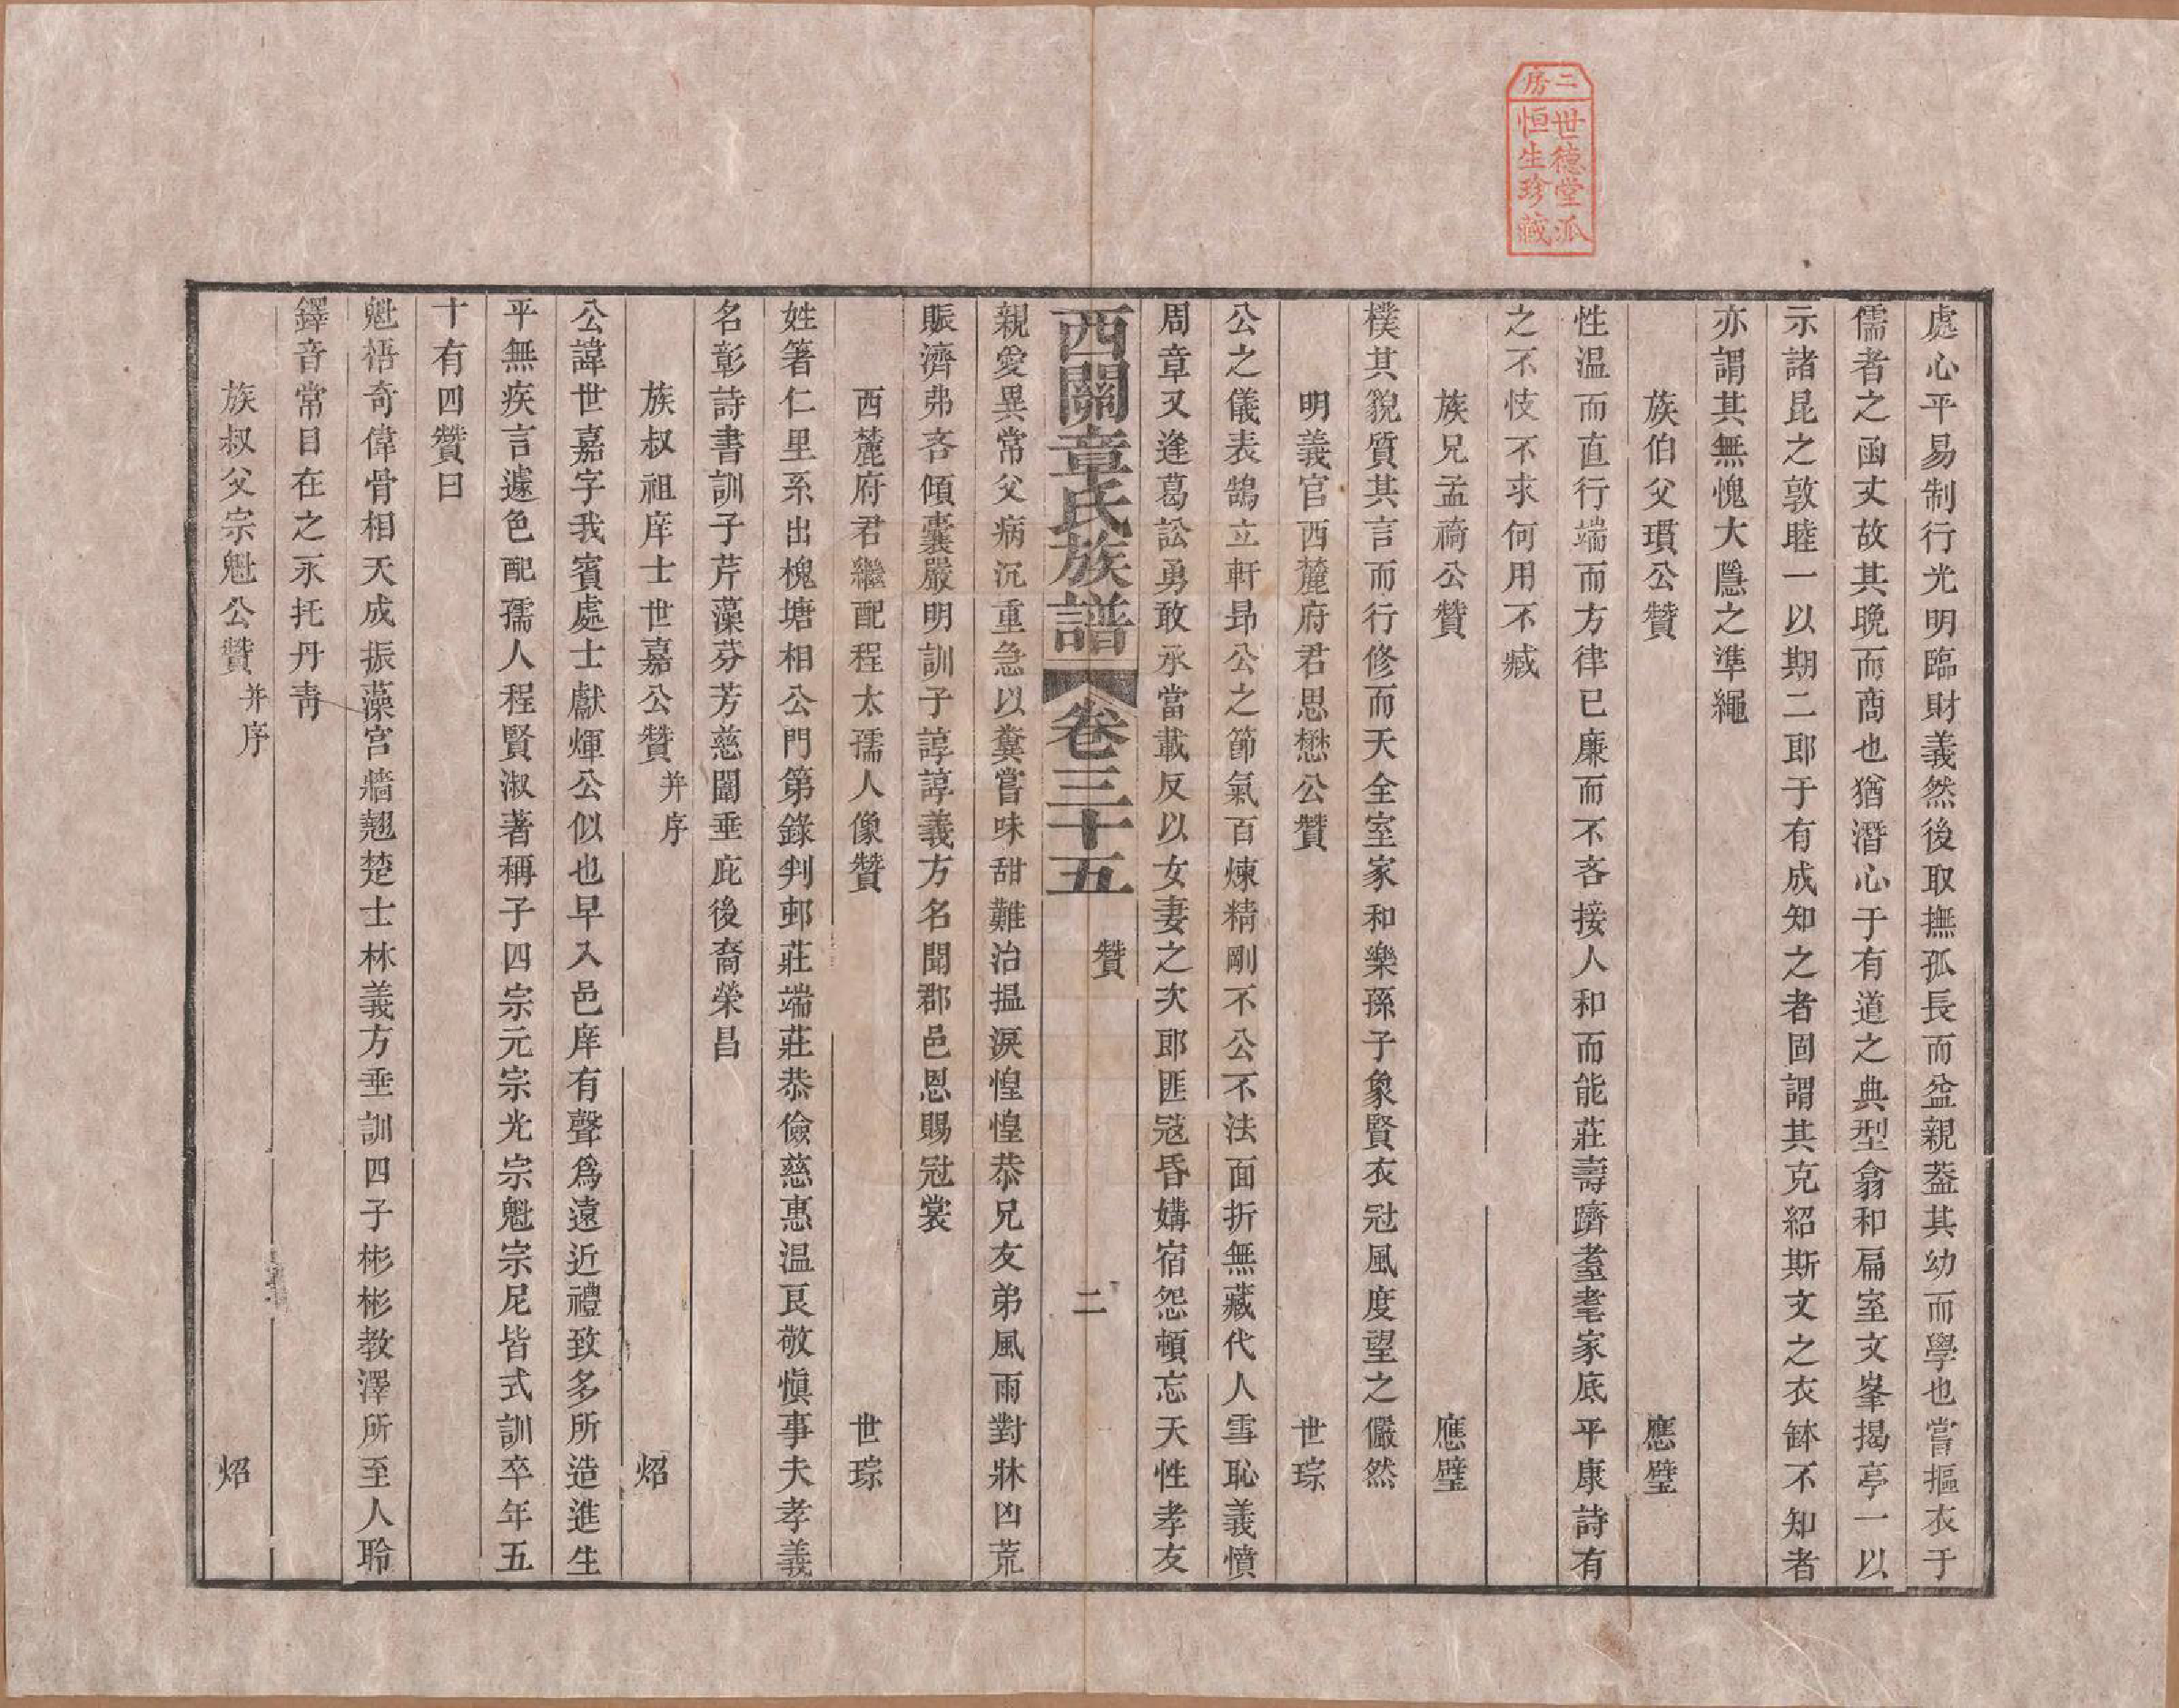 二房
世德堂派
恒生珍藏
處心平易制行光明臨財義然後取撫孤長而益親葢其幼而學也嘗摳衣于
儒者之函丈故其晩而商也猶潛心于有道之典型翕和扁室文峯揭亭一以
示諸昆之敦睦一以期二郎于有成知之者固謂其克紹斯文之衣缽不知者
亦謂其無愧大隱之準繩
族伯父瓆公贊　應璧
性温而直行端而方律已廉而不吝接人和而能莊壽躋耋耄家底平康詩有
之不忮不求何用不臧
族兄孟禍公贊　應璧
樸其貌質其言而行修而天全室家和樂孫子象賢衣冠風度望之儼然
明義官西麓府君思懋公贊　世琮
公之儀表鵠立軒昻公之節氣百煉精剛不公不法面折無藏代人雪恥義憤
周章又逢葛訟勇敢承當載反以女妻之次郎匪寇昏媾宿怨頓忘天性孝友
西關章氏族譜　卷三十五　贊　二
親愛異常父病沉重急以糞嘗味甜難治揾淚惶惶恭兄友弟風雨對牀凶荒
賑濟弗吝傾囊嚴明訓子諄諄義方名聞郡邑恩賜冠裳
西麓府君繼配程太孺人像贊　世琮
姓箸仁里系出槐塘相公門第錄判邨莊端莊恭儉慈惠温良敬愼事夫孝義
名彰詩書訓子芹藻芬芳慈闈垂庇後裔榮昌
族叔祖庠士世嘉公贊并序　炤
公諱世嘉字我賓處士獻煇公似也早入邑庠有聲爲遠近禮致多所造進生
平無疾言遽色配孺人程賢淑著稱子四宗元宗光宗魁宗尼皆式訓卒年五
十有四贊曰
魁梧奇偉骨相天成振藻宮牆翹楚士林義方垂訓四子彬彬教澤所至人聆
鐸音常目在之永托丹靑
族叔父宗魁公贊并序　炤